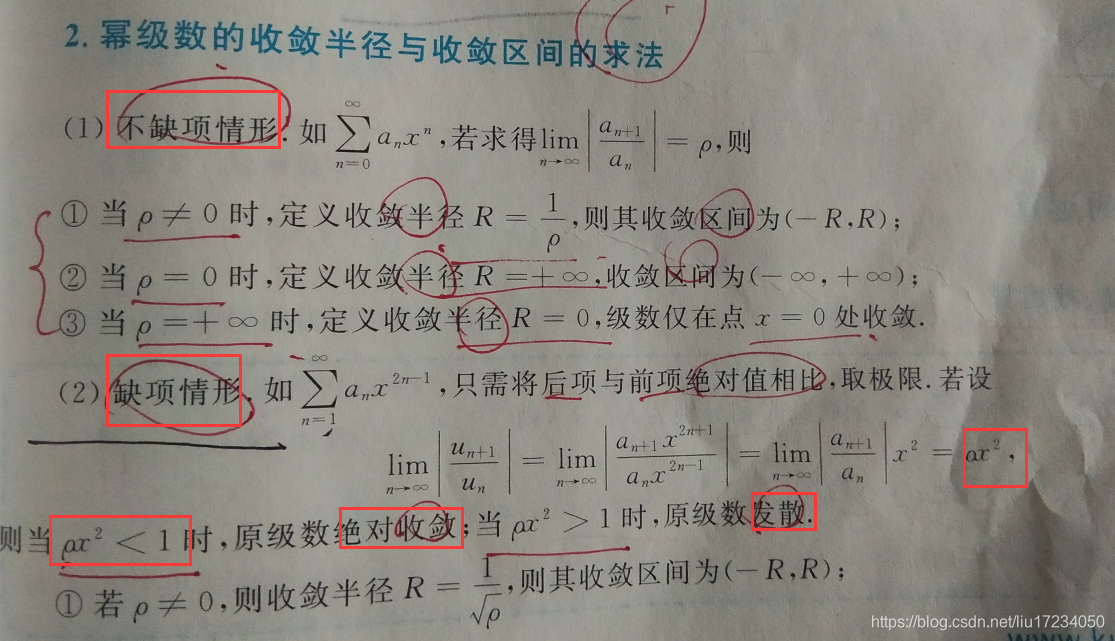 2. 幂级数的收敛半径与收敛区间的求法
(1) 不缺项情形. 如 $\sum_{n=0}^{\infty} a_n x^n$,若求得 $\lim_{n\to\infty} \left| \frac{a_{n+1}}{a_n} \right| = \rho$,则
① 当 ρ ≠ 0 时,定义收敛半径 R = $\frac{1}{\rho}$,则其收敛区间为(−R,R);
② 当 ρ = 0 时,定义收敛半径 R = +∞,收敛区间为(−∞,+∞);
③ 当 ρ = +∞ 时,定义收敛半径 R = 0,级数仅在点 x = 0 处收敛.
(2) 缺项情形. 如 $\sum_{n=1}^{\infty} a_n x^{2n-1}$,只需将后项与前项绝对值相比,取极限. 若设
$\lim_{n\to\infty} \left| \frac{u_{n+1}}{u_n} \right| = \lim_{n\to\infty} \left| \frac{a_{n+1} x^{2n+1}}{a_n x^{2n-1}} \right| = \lim_{n\to\infty} \left| \frac{a_{n+1}}{a_n} \right| x^2 = \rho x^2$,
则当 $\rho x^2 < 1$ 时,原级数绝对收敛;当 $\rho x^2 > 1$ 时,原级数发散.
① 若 ρ ≠ 0,则收敛半径 R = $\frac{1}{\sqrt{\rho}}$,则其收敛区间为(−R,R);
https://blog.csdn.net/liu17234050